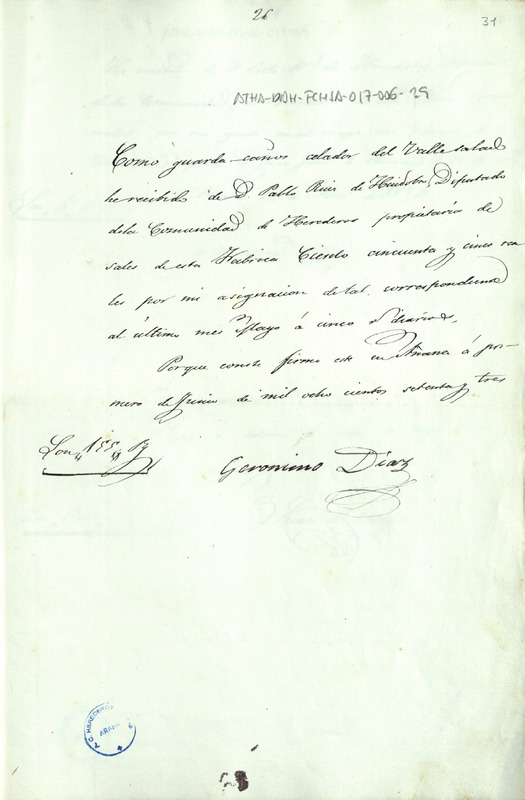 26
31
ATHA-DAH-FCHSA-017-006-29
Como guarda-caños celador del Valle salado
he recibido de D. Pablo Ruiz de Huidobro, Diputado
dela Comunidad de Herederos propietario de
sales de esta Fabrica Ciento cincuenta y cinco rea
les por mi asignacion de tal, correspondiente
al último mes Mayo á cinco r.s diarios.
Porque conste firmo este en Añana á pri-
mero de Junio de mil ocho cientos setenta y tres
Son 155 r.s
Geronimo Díaz
HEREDEROS
AÑANA
28